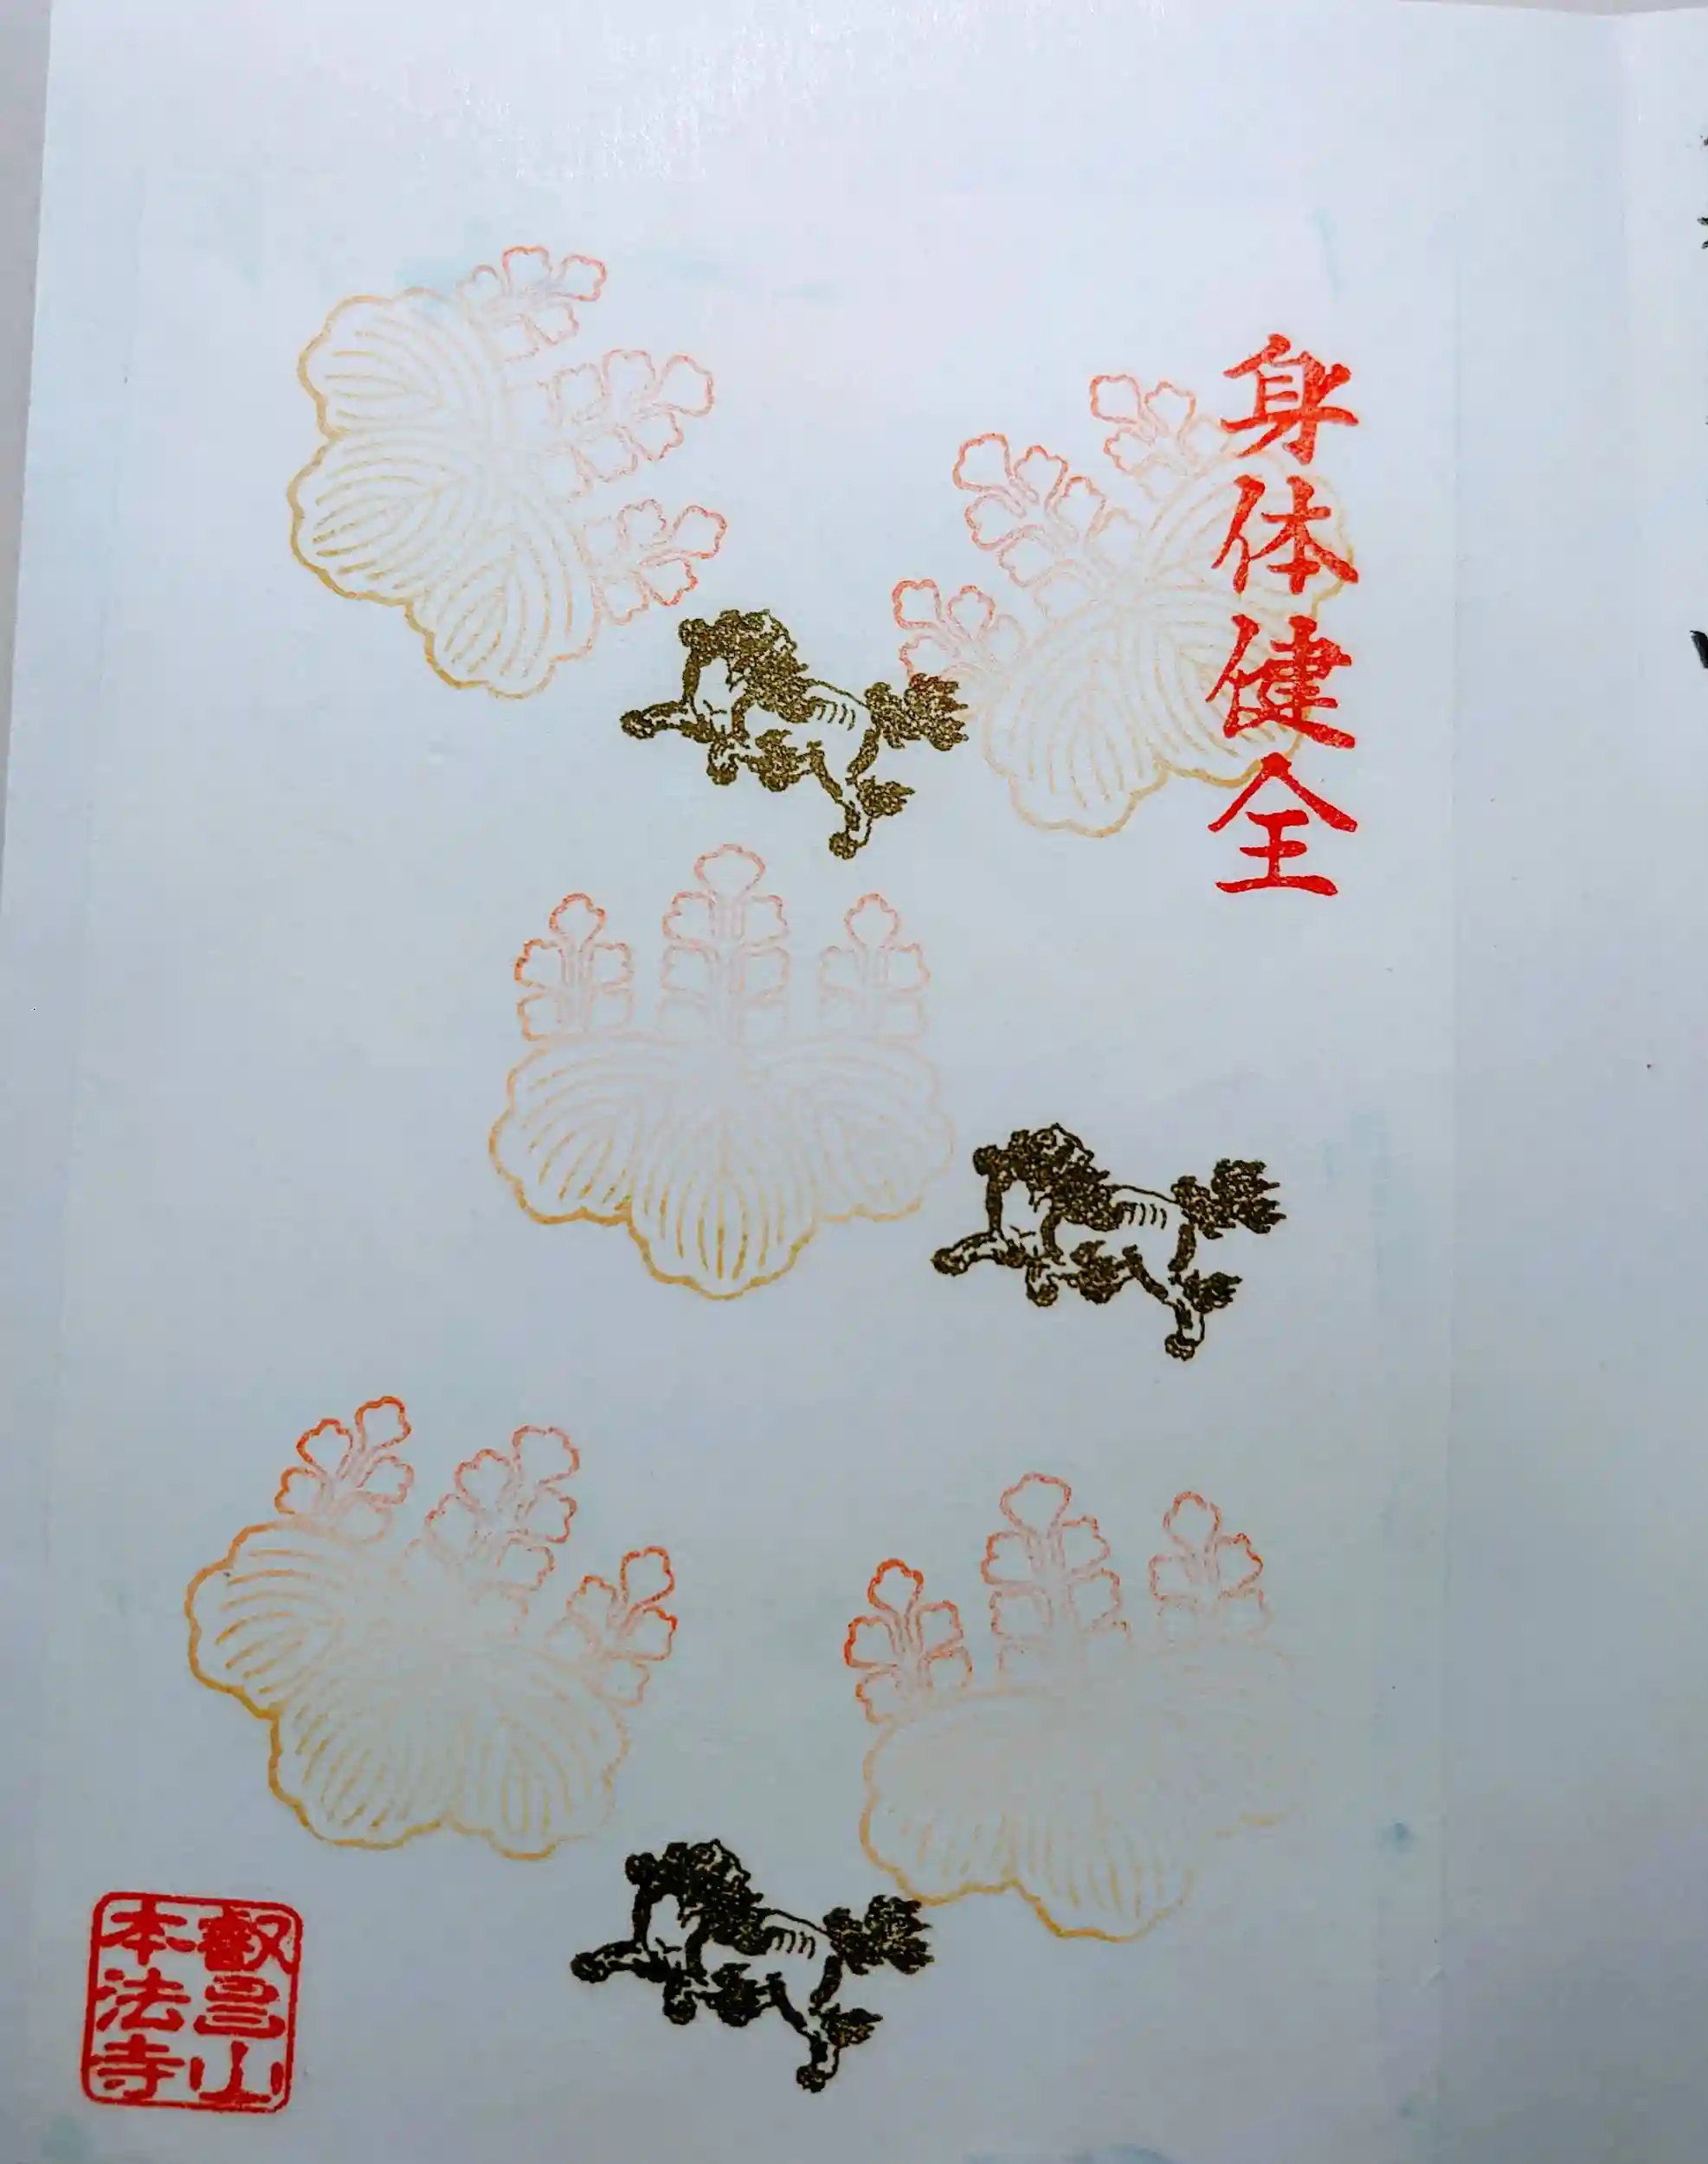 身体健全
叡昌山
本法寺